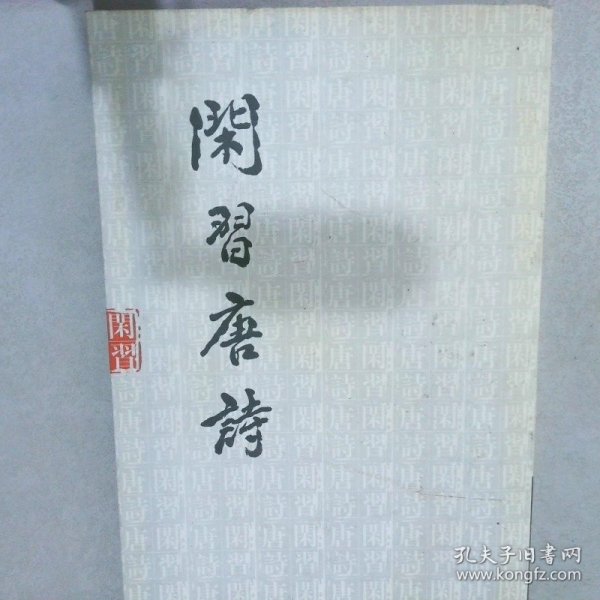 閑習唐詩
閑習
孔夫子旧书网
www.kongfz.com